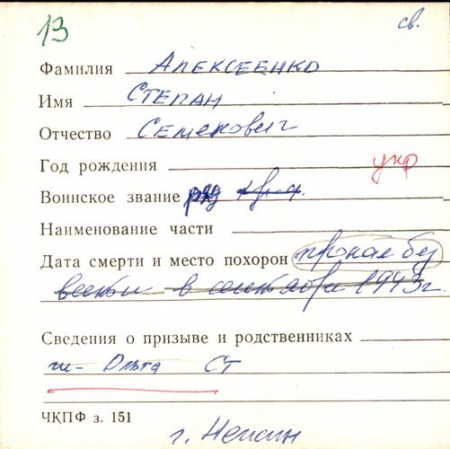 13 св.
Фамилия Алексеенко
Имя Степан
Отчество Семенович
Год рождения укр
Воинское звание ряд
Наименование части
Дата смерти и место похорон пропал без
вести в сентябре 1943г.
Сведения о призыве и родственниках
ж- Ольга Ст
ЧКПФ з. 151
г. Нежин